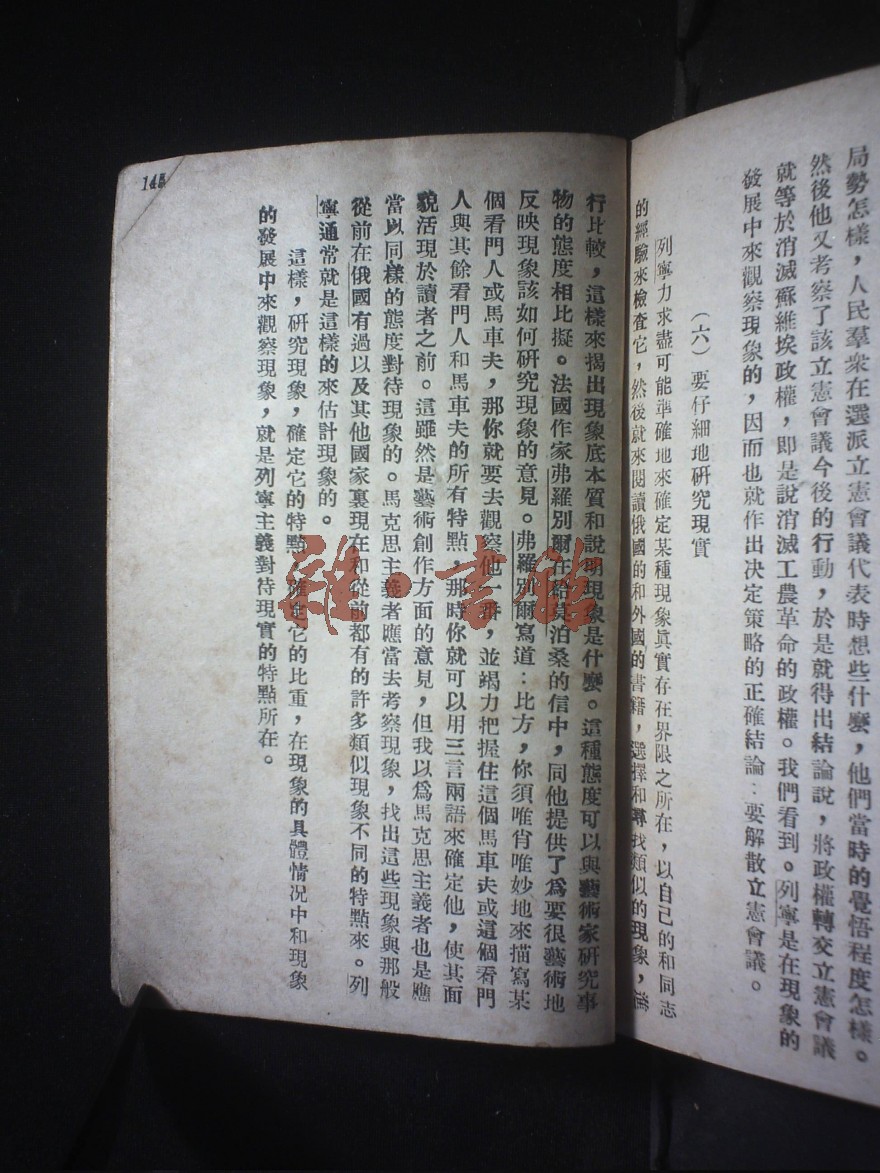 局勢怎樣，人民羣衆在選派立憲會議代表時想些什麼，他們當時的覺悟程度怎樣。
然後他又考察了該立憲會議今後的行動，於是就得出結論說，將政權轉交立憲會議
就等於消滅蘇維埃政權，即是說消滅工農革命的政權。我們看到。列寧是在現象的
發展中來觀察現象的，因而也就作出决定策略的正確結論：要解散立憲會議。
（六）要仔細地研究現實
列寧力求盡可能準確地來確定某種現象眞實存在界限之所在，以自己的和同志
的經驗來檢查它，然後就來閱讀俄國的和外國的書籍，選擇和尋找類似的現象，
行比較，這樣來揭出現象底本質和說明現象是什麼。這種態度可以與藝術家研究事
物的態度相比擬。法國作家弗羅別爾在給莫泊桑的信中，同他提供了爲要很藝術地
反映現象該如何研究現象的意見。弗羅別爾寫道：比方，你須唯肖唯妙地來描寫某
個看門人或馬車夫，那你就要去觀察他一群，並竭力把握住這個馬車夫或這個看門
人與其餘看門人和馬車夫的所有特點，那時你就可以用三言兩語來確定他，使其面
貌活現於讀者之前。這雖然是藝術創作方面的意見，但我以爲馬克思主義者也是應
當以同樣的態度對待現象的。馬克思主義者應當去考察現象，找出這些現象與那般
從前在俄國有過以及其他國家裏現在和從前都有的許多類似現象不同的特點來。列
寧通常就是這樣的來估計現象的。
這樣，研究現象，確定它的特點，確定它的比重，在現象的具體情况中和現象
的發展中來觀察現象，就是列寧主義對待現實的特點所在。
雜·書館